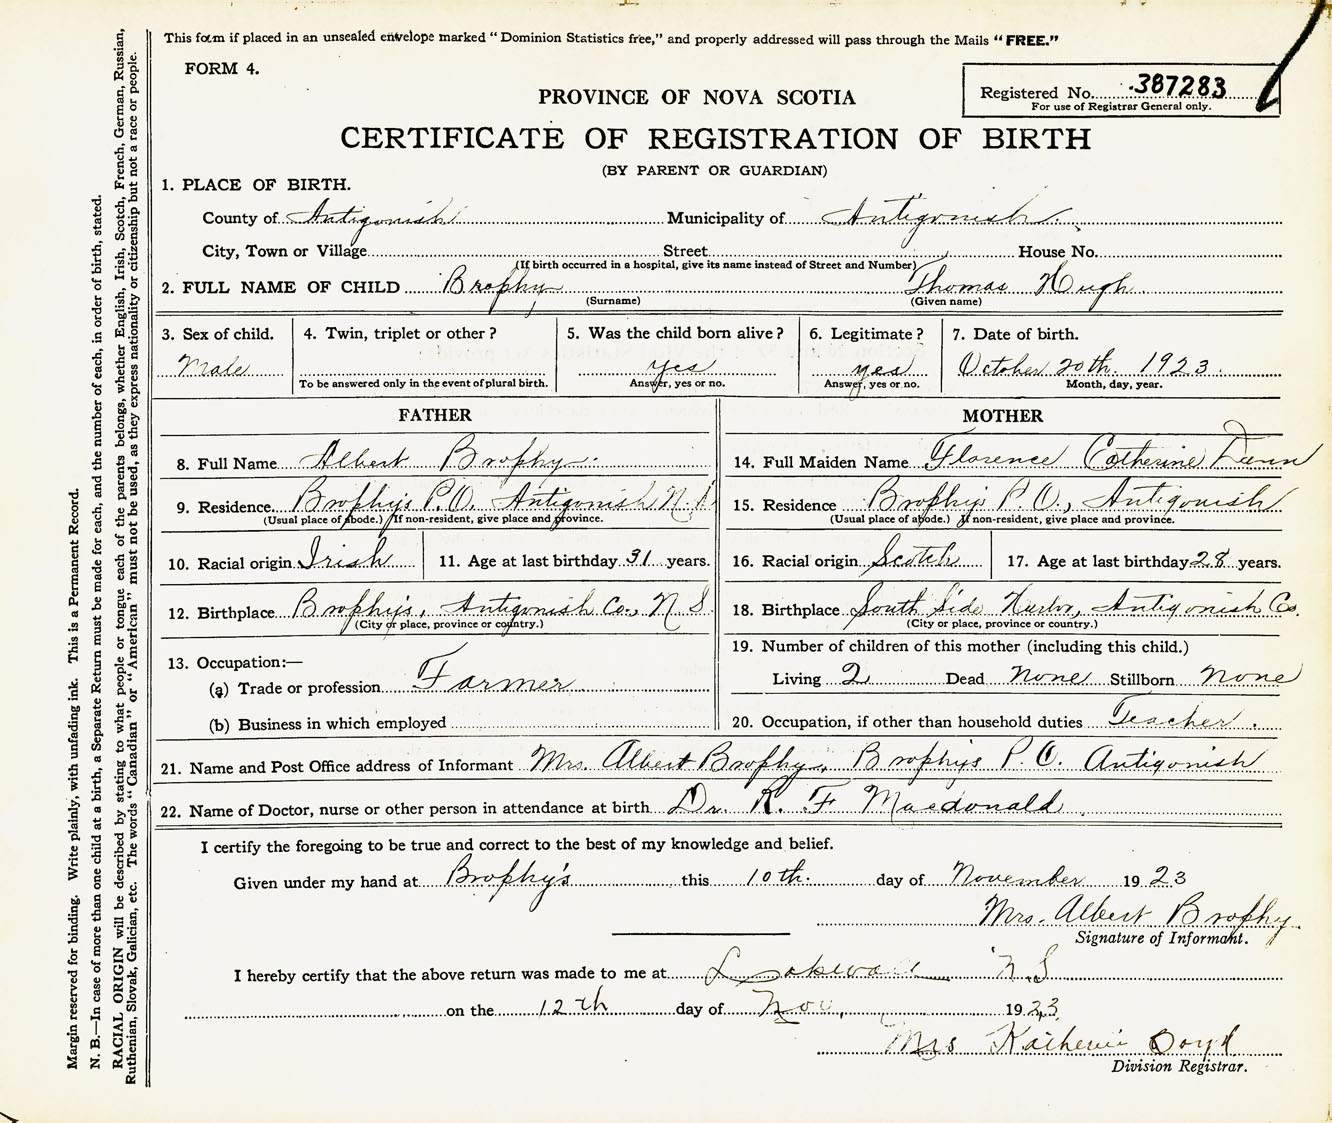 This form if placed in an unsealed envelope marked "Dominion Statistics free," and properly addressed will pass through the Mails "FREE."
FORM 4.
Registered No. 387283
For use of Registrar General only.
PROVINCE OF NOVA SCOTIA
CERTIFICATE OF REGISTRATION OF BIRTH
(BY PARENT OR GUARDIAN)
1. PLACE OF BIRTH.
County of Antigonish Municipality of Antigonish.
City, Town or Village Street House No.
(If birth occurred in a hospital, give its name instead of Street and Number)
2. FULL NAME OF CHILD Brophy Thomas Hugh
(Surname) (Given name)
3. Sex of child. 4. Twin, triplet or other? 5. Was the child born alive? 6. Legitimate? 7. Date of birth.
Male yes yes October 20th. 1923.
To be answered only in the event of plural birth. Answer, yes or no. Answer, yes or no. Month, day, year.
FATHER MOTHER
8. Full Name Albert Brophy. 14. Full Maiden Name Florence Catherine Dunn
9. Residence Brophy's P.O. Antigonish N.S. 15. Residence Brophy's P.O., Antigonish
(Usual place of abode.) If non-resident, give place and province. (Usual place of abode.) If non-resident, give place and province.
10. Racial origin Irish 11. Age at last birthday 31 years. 16. Racial origin Scotch 17. Age at last birthday 28 years.
12. Birthplace Brophy's, Antigonish Co., N.S. 18. Birthplace South Side Harbor, Antigonish Co.
(City or place, province or country.) (City or place, province or country.)
19. Number of children of this mother (including this child.)
13. Occupation:—
(a) Trade or profession Farmer Living 2 Dead None Stillborn None
(b) Business in which employed 20. Occupation, if other than household duties Teacher.
21. Name and Post Office address of Informant Mrs. Albert Brophy, Brophy's P.O. Antigonish
22. Name of Doctor, nurse or other person in attendance at birth Dr. R. F. Macdonald
I certify the foregoing to be true and correct to the best of my knowledge and belief.
Given under my hand at Brophy's this 10th. day of November 1923
Mrs. Albert Brophy.
Signature of Informant.
I hereby certify that the above return was made to me at Lakevale N.S
on the 12th day of Nov. 1923
Mrs Katherine Boyd
Division Registrar.
Margin reserved for binding. Write plainly, with unfading ink. This is a Permanent Record.
N. B.—In case of more than one child at a birth, a Separate Return must be made for each, and the number of each, in order of birth, stated.
RACIAL ORIGIN will be described by stating to what people or tongue each of the parents belongs, whether English, Irish, Scotch, French, German, Russian,
Ruthenian, Slovak, Galician, etc. The words "Canadian" or "American" must not be used, as they express nationality or citizenship but not a race or people.